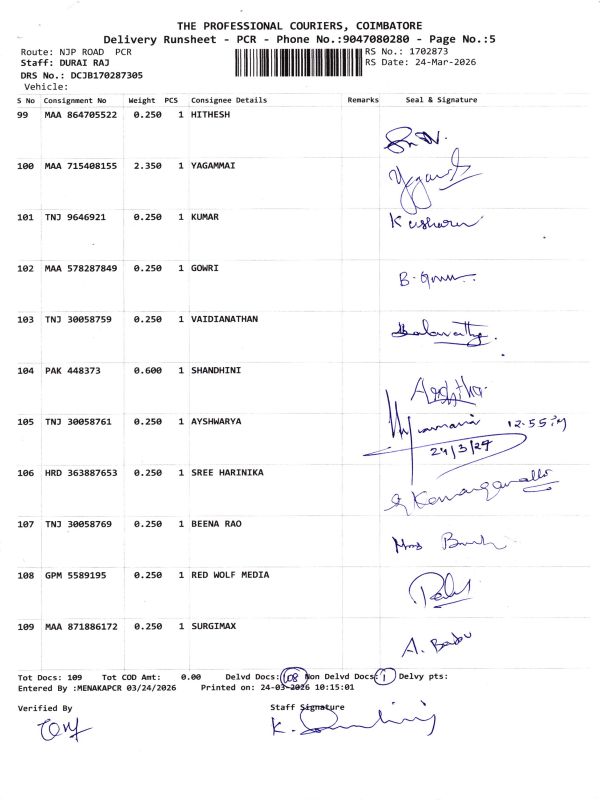 THE PROFESSIONAL COURIERS, COIMBATORE
Delivery Runsheet - PCR - Phone No.:9047080280 - Page No.:5
Route: NJP ROAD PCR RS No.: 1702873
Staff: DURAI RAJ RS Date: 24-Mar-2026
DRS No.: DCJB170287305
Vehicle:
S No Consignment No Weight PCS Consignee Details Remarks Seal & Signature
99 MAA 864705522 0.250 1 HITHESH
100 MAA 715408155 2.350 1 YAGAMMAI
101 TNJ 9646921 0.250 1 KUMAR
102 MAA 578287849 0.250 1 GOWRI
B.
103 TNJ 30058759 0.250 1 VAIDIANATHAN
104 PAK 448373 0.600 1 SHANDHINI
105 TNJ 30058761 0.250 1 AYSHWARYA
12.55
106 HRD 363887653 0.250 1 SREE HARINIKA
107 TNJ 30058769 0.250 1 BEENA RAO
108 GPM 5589195 0.250 1 RED WOLF MEDIA
109 MAA 871886172 0.250 1 SURGIMAX
A. Babu
Tot Docs: 109 Tot COD Amt: 0.00 Delvd Docs: 108 Non Delvd Docs: 1 Delvy pts:
Entered By :MENAKAPCR 03/24/2026 Printed on: 24-03-2026 10:15:01
Verified By Staff Signature
K.